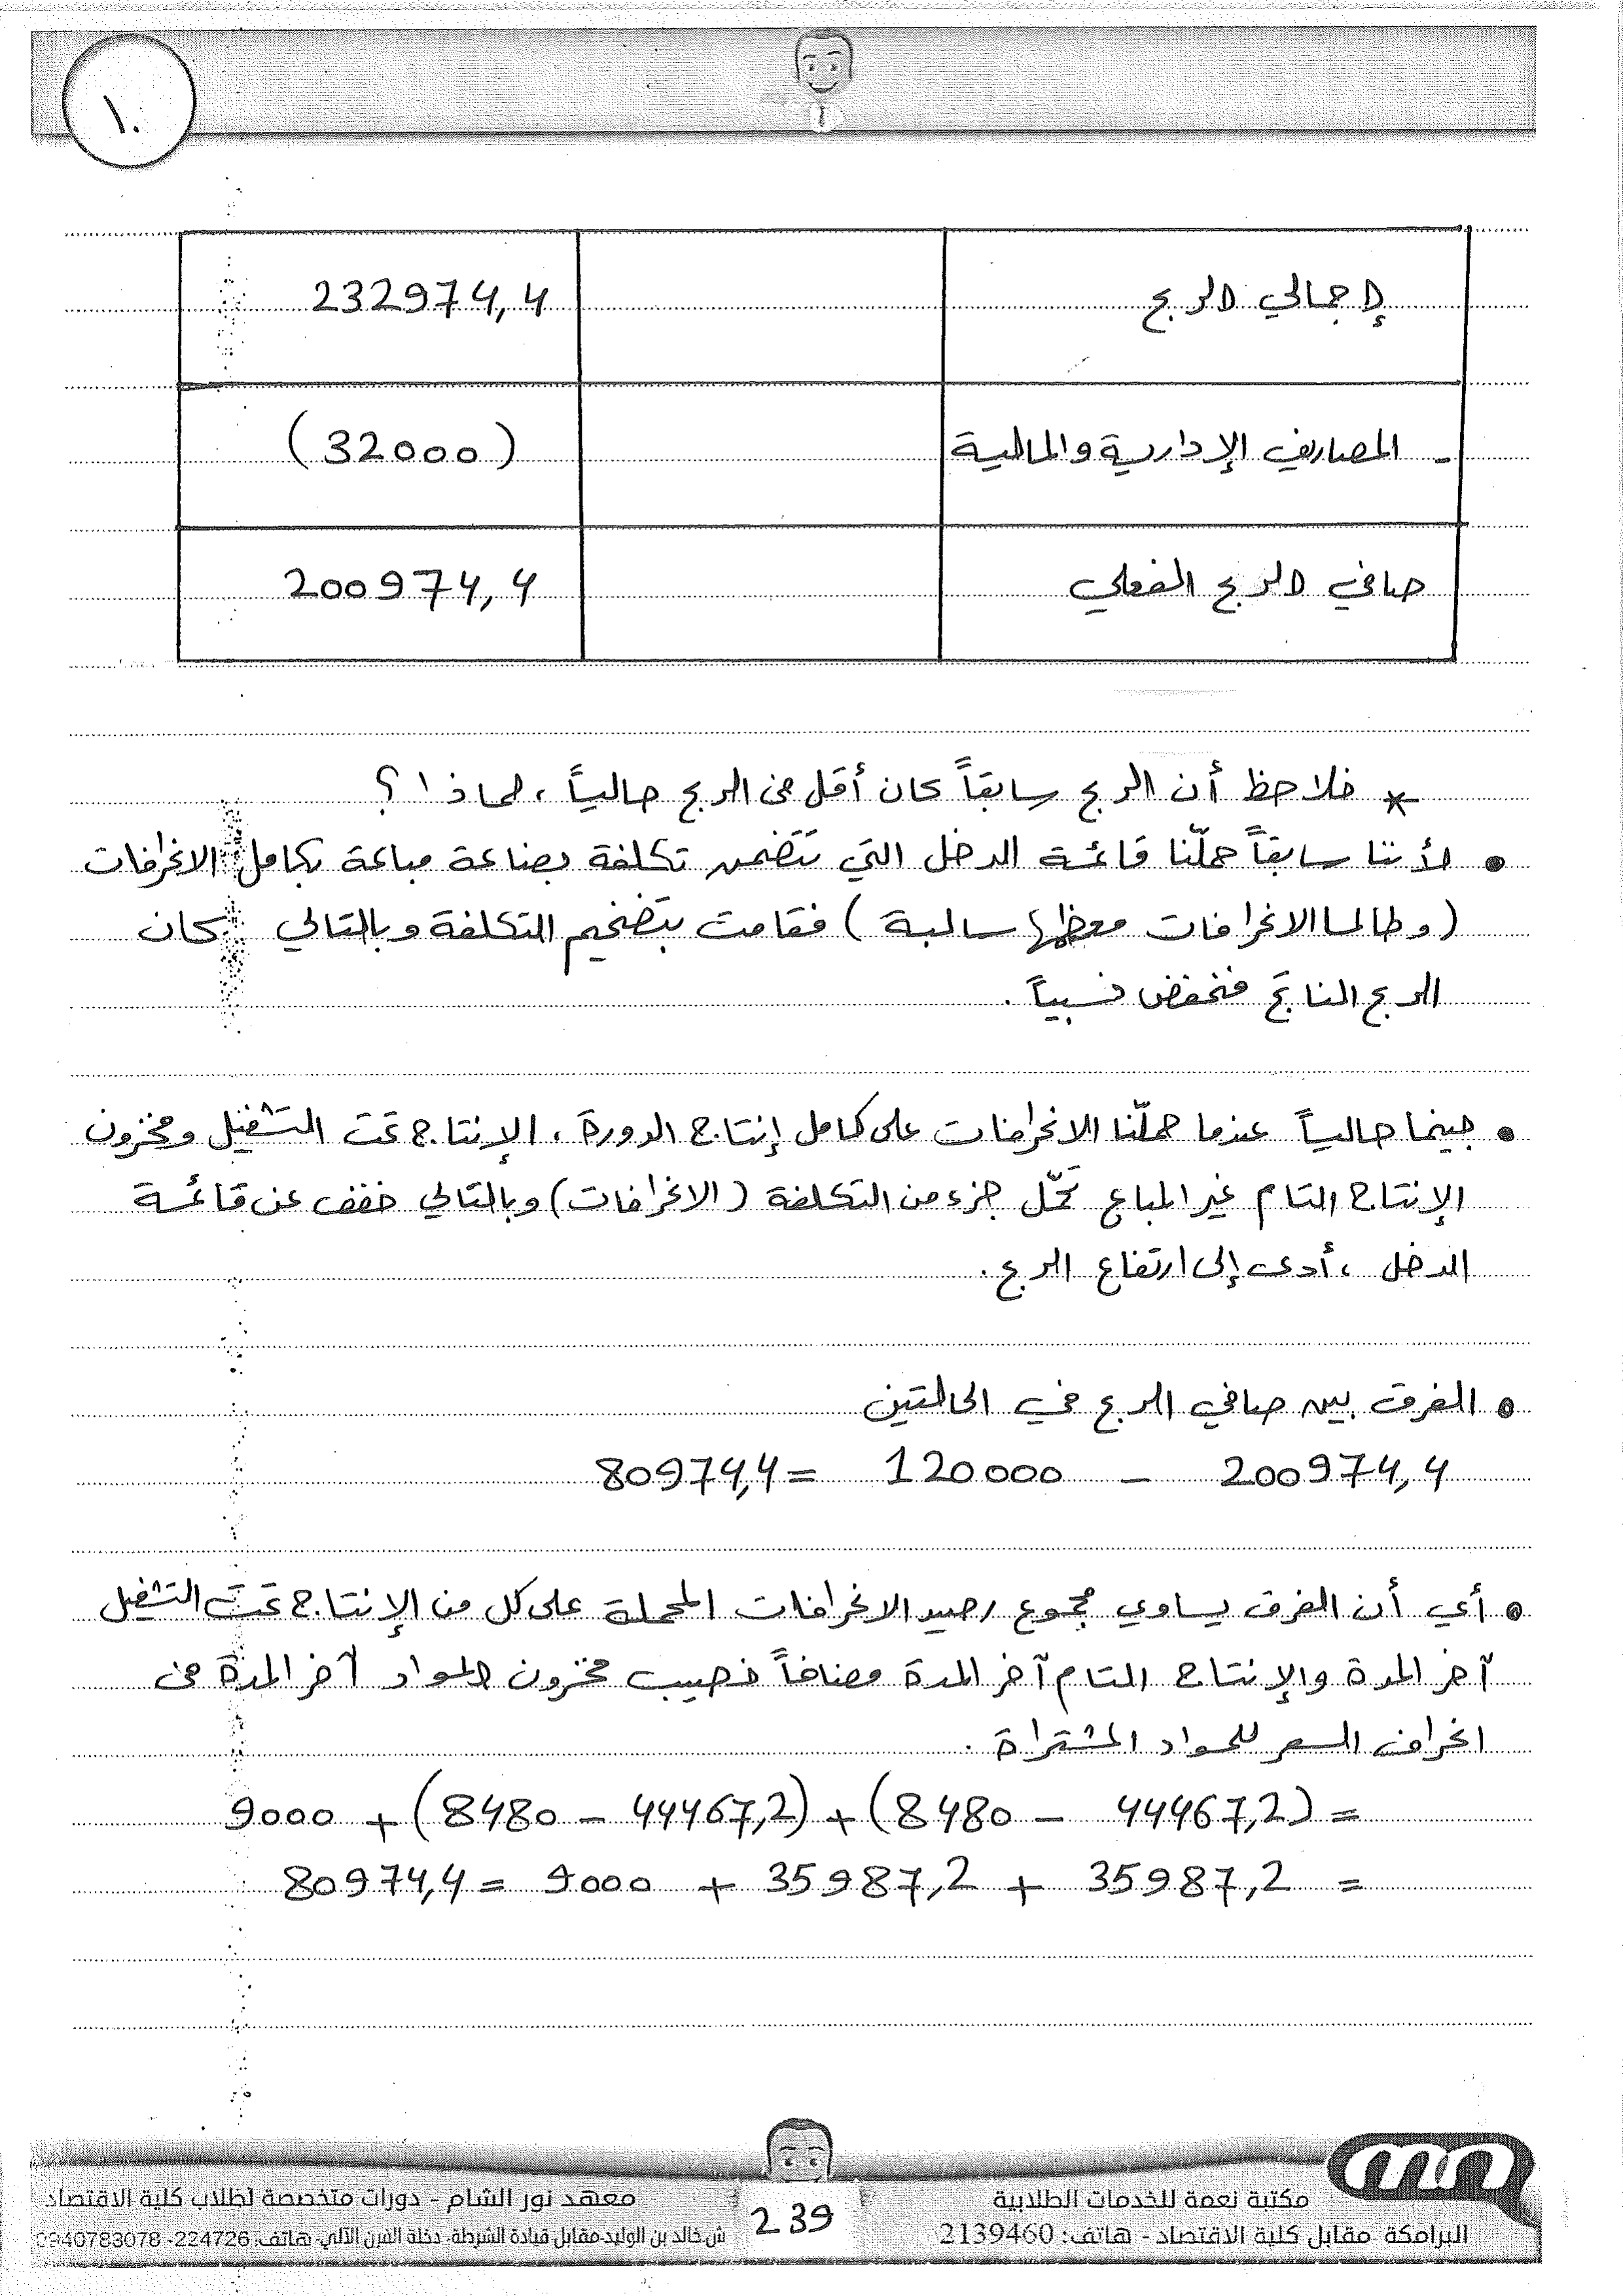 ١٠
إجمالي الربح 232974,4
- المصاريف الإدارية والمالية (32000)
صافي الربح الفعلي 200974,4
* نلاحظ أن الربح سابقاً كان أقل من الربح حالياً، لماذا؟
• لأننا سابقاً حمّلنا قائمة الدخل التي تتضمن تكلفة بضاعة مباعة بكامل الانحرافات
(وطالما الانحرافات معظمها سالبة) فقامت بتضخيم التكلفة وبالتالي كان
الربح الناتج منخفض نسبياً.
• بينما حالياً عندما حملّنا الانحرافات على كامل إنتاج الدورة، الإنتاج تحت التشغيل ومخزون
الإنتاج التام غير المباع تحمّل جزء من التكلفة (الانحرافات) وبالتالي خفف عن قائمة
الدخل، أدى إلى ارتفاع الربح.
• الفرق بين صافي الربح في الحالتين
200974,4 – 120000 = 80974,4
• أي أن الفرق يساوي مجموع رصيد الانحرافات المحملة على كل من الإنتاج تحت التشغيل
آخر المدة والإنتاج التام آخر المدة مضافاً نصيب مخزون المواد آخر المدة من
انحراف السعر للمواد المشتراة.
= (44467,2 – 8480) + (44467,2 – 8480) + 9000
= 35987,2 + 35987,2 + 9000 = 80974,4
مكتبة نعمة للخدمات الطلابية
البرامكة - مقابل كلية الاقتصاد - هاتف: 2139460
239
معهد نور الشام - دورات متخصصة لطلاب كلية الاقتصاد
ش.خالد بن الوليد-مقابل قيادة الشرطة- دخلة الفرن الآلي- هاتف: 224726- 0940783078